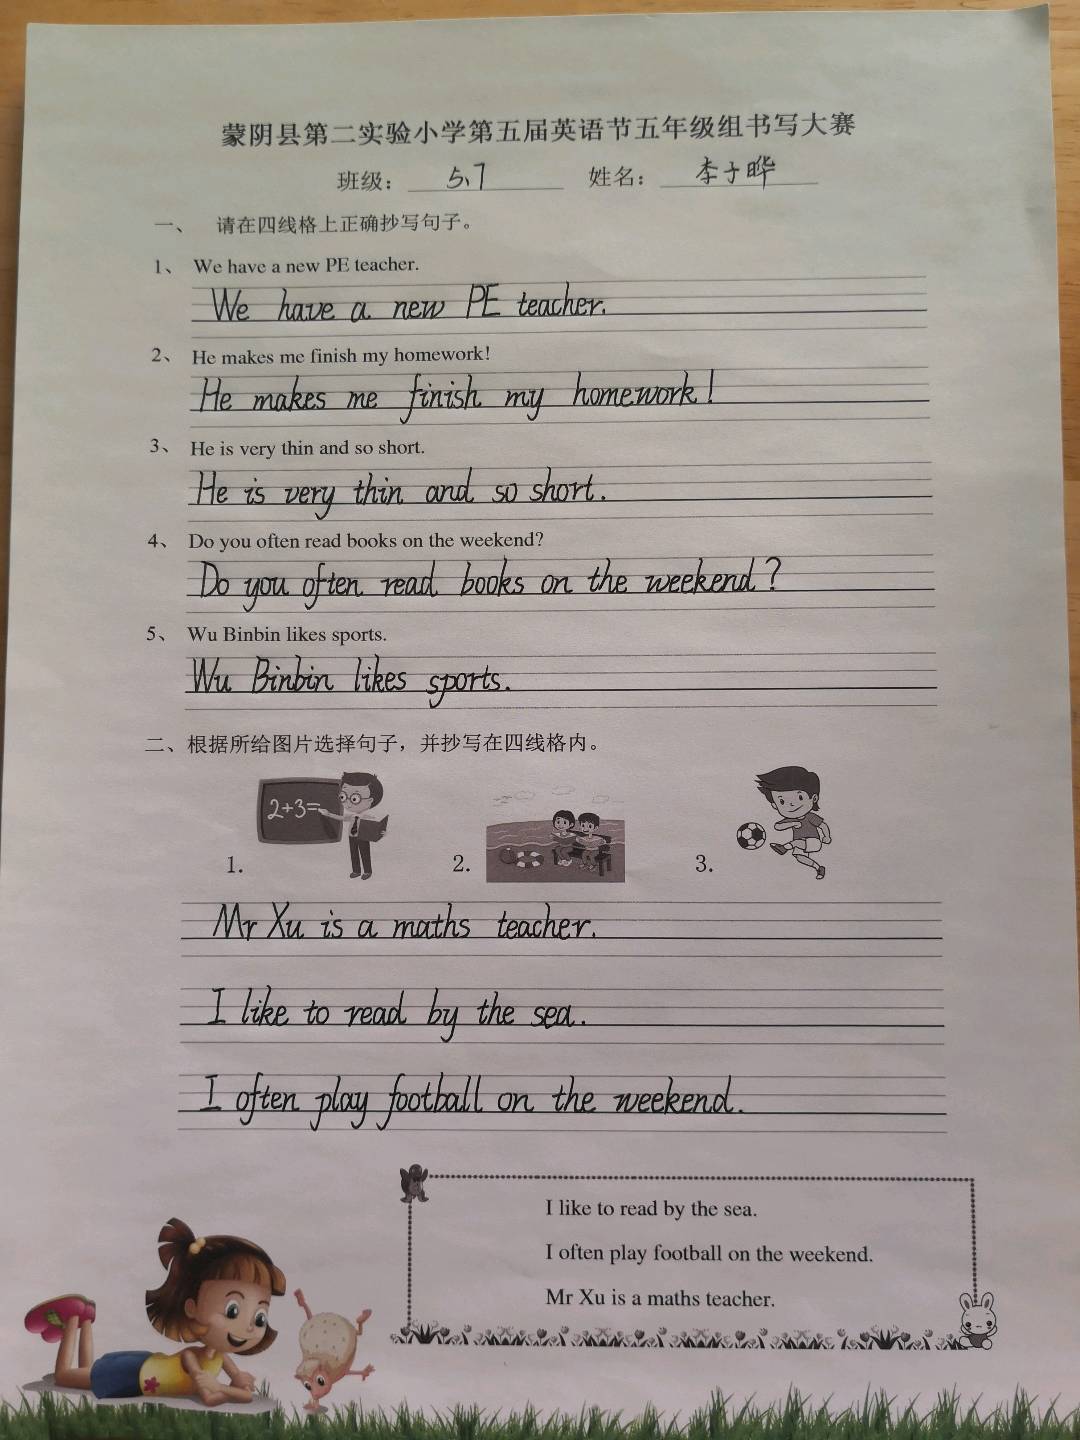 蒙阴县第二实验小学第五届英语节五年级组书写大赛
班级： 5、7 姓名： 李子晔
一、 请在四线格上正确抄写句子。
1、 We have a new PE teacher.
We have a new PE teacher.
2、 He makes me finish my homework!
He makes me finish my homework!
3、 He is very thin and so short.
He is very thin and so short.
4、 Do you often read books on the weekend?
Do you often read books on the weekend?
5、 Wu Binbin likes sports.
Wu Binbin likes sports.
二、根据所给图片选择句子，并抄写在四线格内。
2+3=
1. 2. 3.
Mr Xu is a maths teacher.
I like to read by the sea.
I often play football on the weekend.
I like to read by the sea.
I often play football on the weekend.
Mr Xu is a maths teacher.